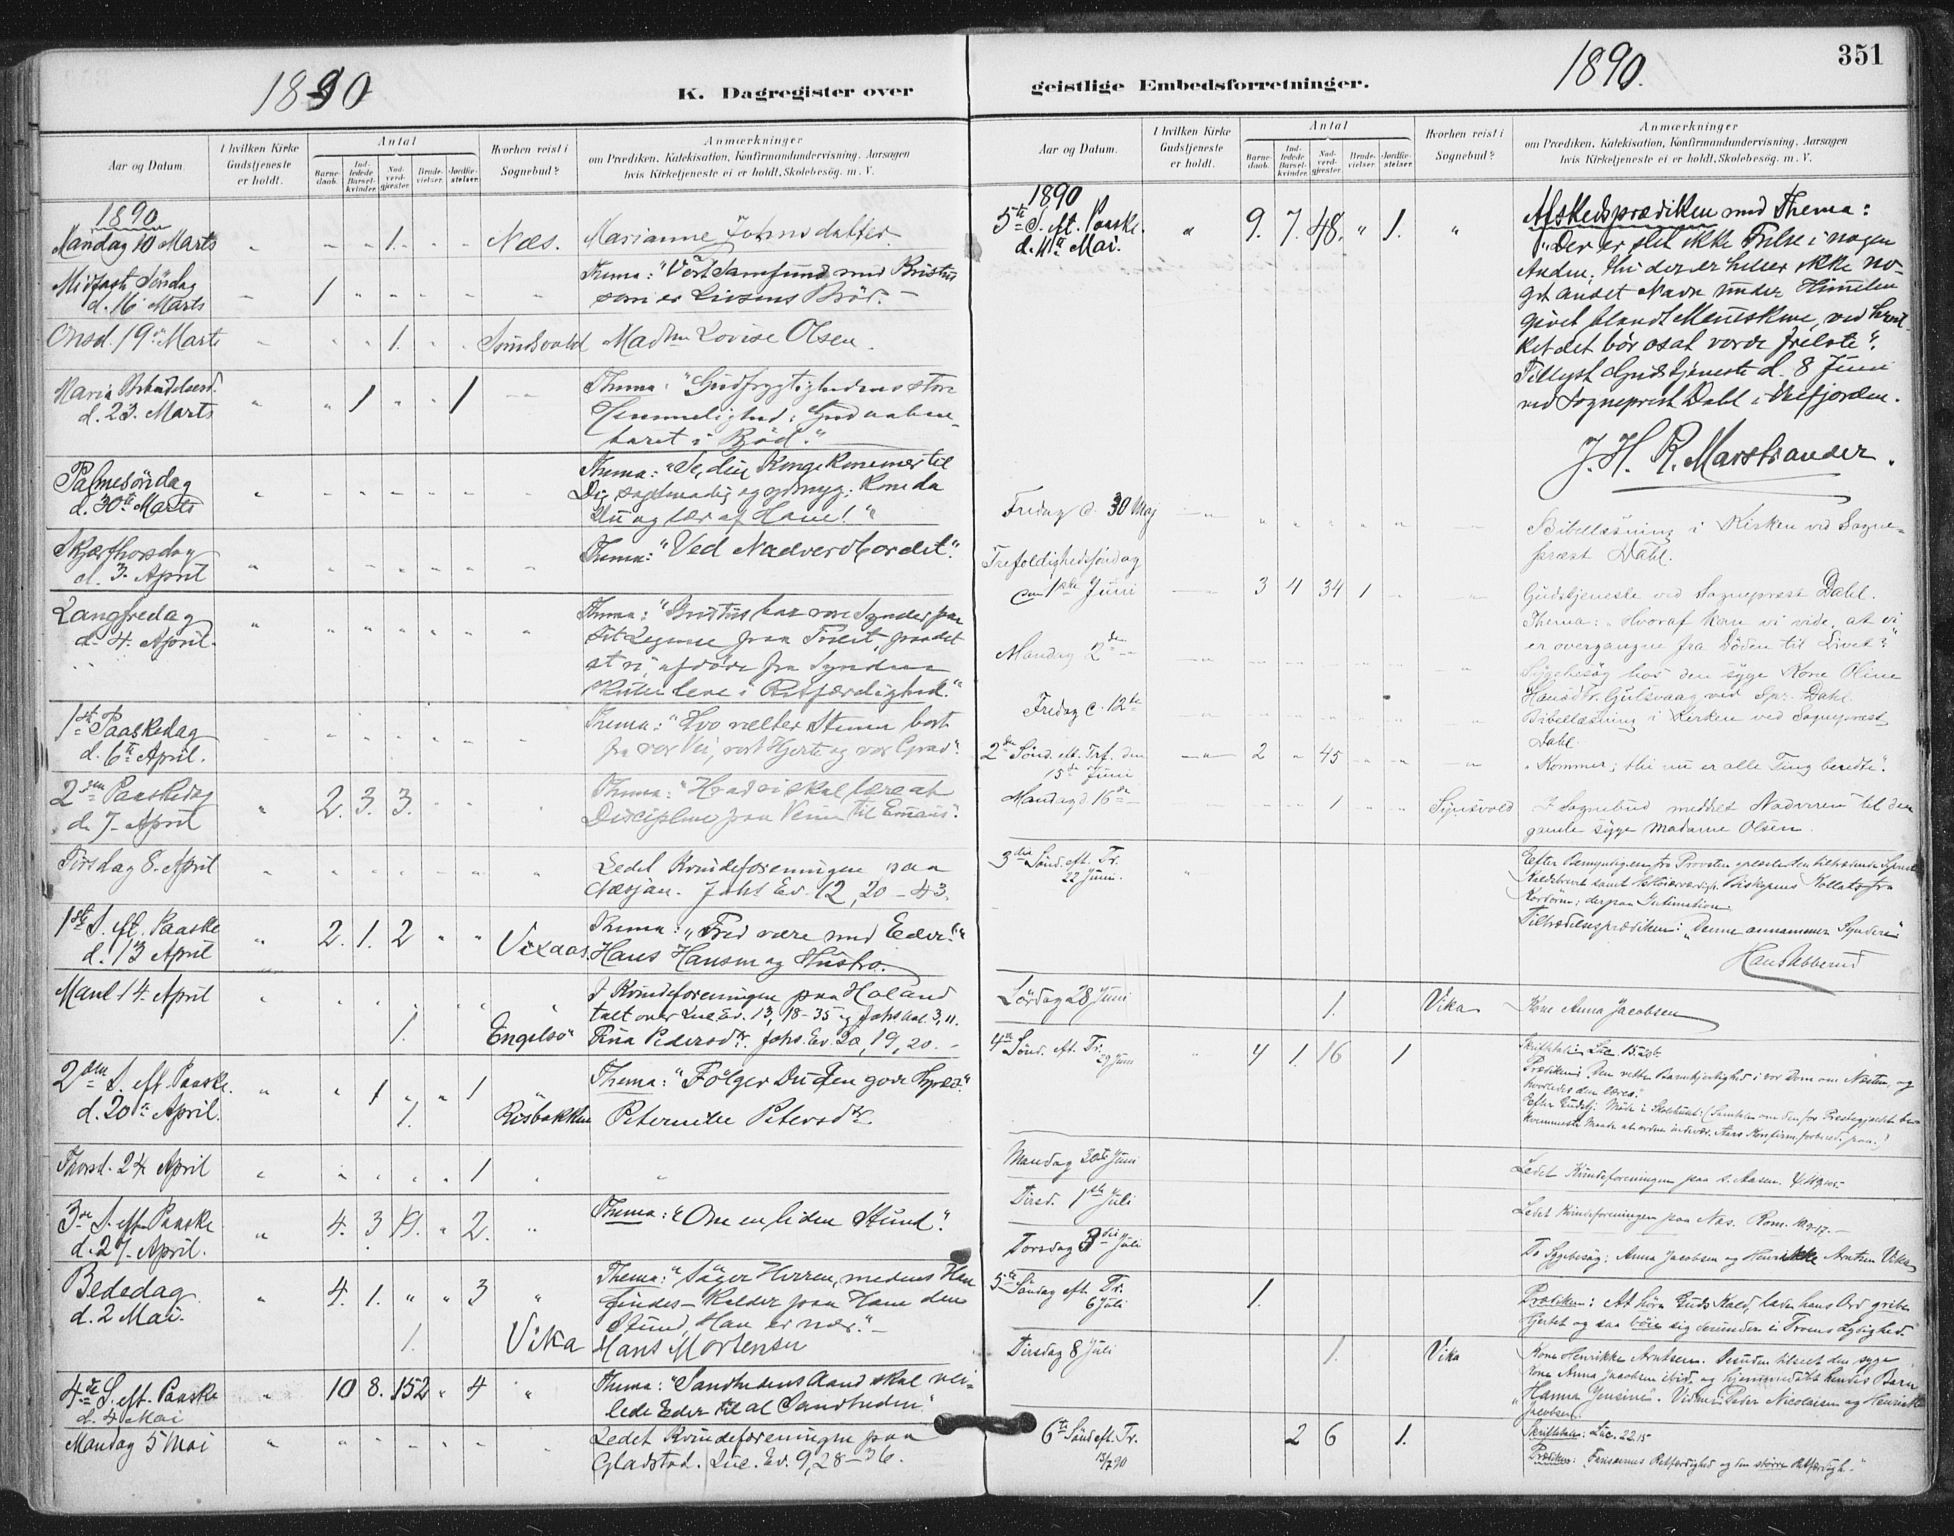 1890
K. Dagregister over
Aar og Datum.
I hvilken Kirke Gudstjeneste er holdt.
Antal
Barnedaab.
Indledede Barselkvinder.
Nadverdgjester
Brudevielser.
Jordfæstelser.
Hvorhen reist i Sognebud?
Anmærkninger
om Prædiken, Katekisation, Konfirmandundervisning, Aarsagen
hvis Kirketjeneste ei er holdt, Skolebesög. m. V.
1890
Mandag 10 Marts " " " 1. " " Næs. Marianne Johnsdatter.
Midfaste Søndag
d. 16 Marts " 1 " " " " "
Thema: "Vort Samfund med Kristus
som er Livsens Bröd. –
Onsd. 19 Marts " " " 1. " " Sundsvold Madm Lovise Olsen.
Maria Bebudelsesd.
d. 23. Marts " " 1 " " 1
Thema: "Gudfrygtighedens store
Hemmelighed: Gud aaben-
baret i Kjöd."
Palmesöndag
d. 30te Marts
Thema: "Se, din Konge kommer til
Dig sagtmodig og ydmyg: Kom da
Du og lær af Ham!"
Skjærthorsdag
d. 3. April
Thema: "Ved Nadverdbordet".
Langfredag
d. 4. April.
Thema: "Kristus bar vore Synder paa
sit Legeme paa Træet, paa det
at vi, afdöde fra Synden
skulle leve i Retfærdighed."
1ste Paaskedag
d. 6te April.
Thema: "Hvo vælter Stenen bort
fra vor Vei, vort Hjerte og vor Grav".
2den Paaskedag
d. 7. April " 2. 3. 3.
Thema: "Hvad vi skal lære af
Disciplene paa Veien til Emaus".
Tirsdag 8. April
Ledet Kvindeforeningen paa
Næsjan. Johs Ev. 12, 20–43.
1ste S. eft. Paaske
d. 13 April " 2. 1. 2 " " Vixaas
Thema: "Fred være med Eder!"
Hans Hansen og Hustro.
Mand. 14. April
I Kvindeforeningen paa Holand
talt over Luc Ev. 13, 18–35 og Johs Aab. 3, 11.
1. Engelsö Pina Pedersdtr. Johs. Ev. 20, 19, 20. –
2den S. eft. Paaske.
d. 20de April. " " 1 " " 1
Thema: "Fölger Du den gode Hyrde?"
1. Risbakken Peternille Petersdtr.
Thorsd. 24 April " " " " " 1 "
3die S. eft. Paaske
d. 27. April. " 4. 3. 19. " 2. "
Thema: "Om en liden Stund".
Bededag
d. 2 Mai. " 4. 1. " " 3 "
Thema: "Söger Herren, medens Han
findes – Kalder paa Ham den
Stund, Han er nær." –
1. Vika Hans Mortensen
4de S. eft. Paaske
d. 4 Mai " 10 8. 152 " 4 "
Thema: "Sandhedens Aand skal vei-
lede Eder til al Sandheden".
Mandag 5 Mai
Ledet Kvindeforeningen paa
Gladstad. Luc. Ev. 9, 28–36.
geistlige Embedsforretninger.
1890.
351
Aar og Datum.
I hvilken Kirke Gudstjeneste er holdt.
Antal
Barnedaab.
Indledede Barselkvinder.
Nadverdgjester
Brudevielser.
Jordfæstelser.
Hvorhen reist i Sognebud?
Anmærkninger
om Prædiken, Katekisation, Konfirmandundervisning, Aarsagen
hvis Kirketjeneste ei er holdt, Skolebesög. m. V.
1890
5te S. eft. Paaske.
d. 11te Mai. " 9. 7. 48. " 1. "
Afskedsprædiken med Thema:
"Der er slet ikke Frelse i nogen
Anden, thi der er heller ikke no-
get andet Navn under Himmelen
givet blandt Menneskene, ved hvil-
ket det bör os at vorde frelste".
Tillyst Gudstjeneste d. 8 Juni
ved Sogneprest Dahl i Velfjorden.
J. H. R. Marstrander.
Fredag d. 30 Maj
Bibellæsning i Kirken ved Sogne-
præst Dahl.
Trefoldighedssöndag
den 1ste Juni 3 4 34 1
Gudstjeneste ved Sognepræst Dahl.
Thema: "Hvoraf kan vi vide, at vi
er overgangne fra Döden til Livet?"
Mandag 2den
Sygebesög hos den syge Kone Oline
Hansdtr. Gjulsvaag ved Spr. Dahl.
Fredag d. 12te
Bibellæsning i Kirken ved Sognepræst
Dahl.
2den Sönd. eft. Trf. den
15de Juni 2 " 45
"Kommer; thi nu er alle Ting beredte".
Mandag d 16de 1 Sundsvold
I Sognebud meddelt Nadveren til den
gamle syge Madame Olsen.
3die Sönd. eft. Tr.
22 Juni.
Efter Bemyndigelse fra Provsten oplæste den tiltrædende Spræst
Kaldsbrevet samt Hs Höiærværdigh. Biskopens Kollats fra
Kordörn; derpaa Intimation.
Tiltrædelsesprædiken: "Denne annammer Syndere".
Hans Abberud
Lördag 28 Juni 1. Vika Kone Anna Jacobsen
4de Sönd. eft. Tr.
29 Juni 4 1. 16 1
Skriftetale: Luc. 15.
Prædiken: Den rette Barmhjertighed i vor Dom om Næsten, og
hvorledes den læres.
Efter Gudstj. Möde i Skolehuset: (Samtale om den for Prestegjældet be-
kvemmeste Maade at ordne indevær. Aars Konfirm.forbered. paa.)
Mandag 30te Juni
Ledet Kvindeforeningen paa s. Aasen.
Tirsd. 1ste Juli
Ledet Kvindeforeningen paa Næs. Rom. 10, 9-17. –
Torsdag 3die Juli
To Sygebesög: Anna Jacobsen og Henrikke Arntsen Vika
5te Söndag eft. Tr.
6 Juli 1.
Prædiken: At höre Guds Kald, lade hans Ord gribe
Hjertet og saa böie sig derunder i Troens Lydighed.
Tirsdag 8 Juli 1. Vika
Kone Henrikke Arntsen. Desuden tilseet den syge
Kone Anna Jacobsen ibid. og hjemmedöbt hendes Barn
"Hanna Jensine". Vidner: Peder Nicolaisen og Henrikke
Jacobsen.
6te Sönd eft. Tr.
13/7 90 2 6 1.
Skriftetale: Luc. 22.15
Prædiken: "Farisæernes Retfærdighed og den större Retfærdigh."